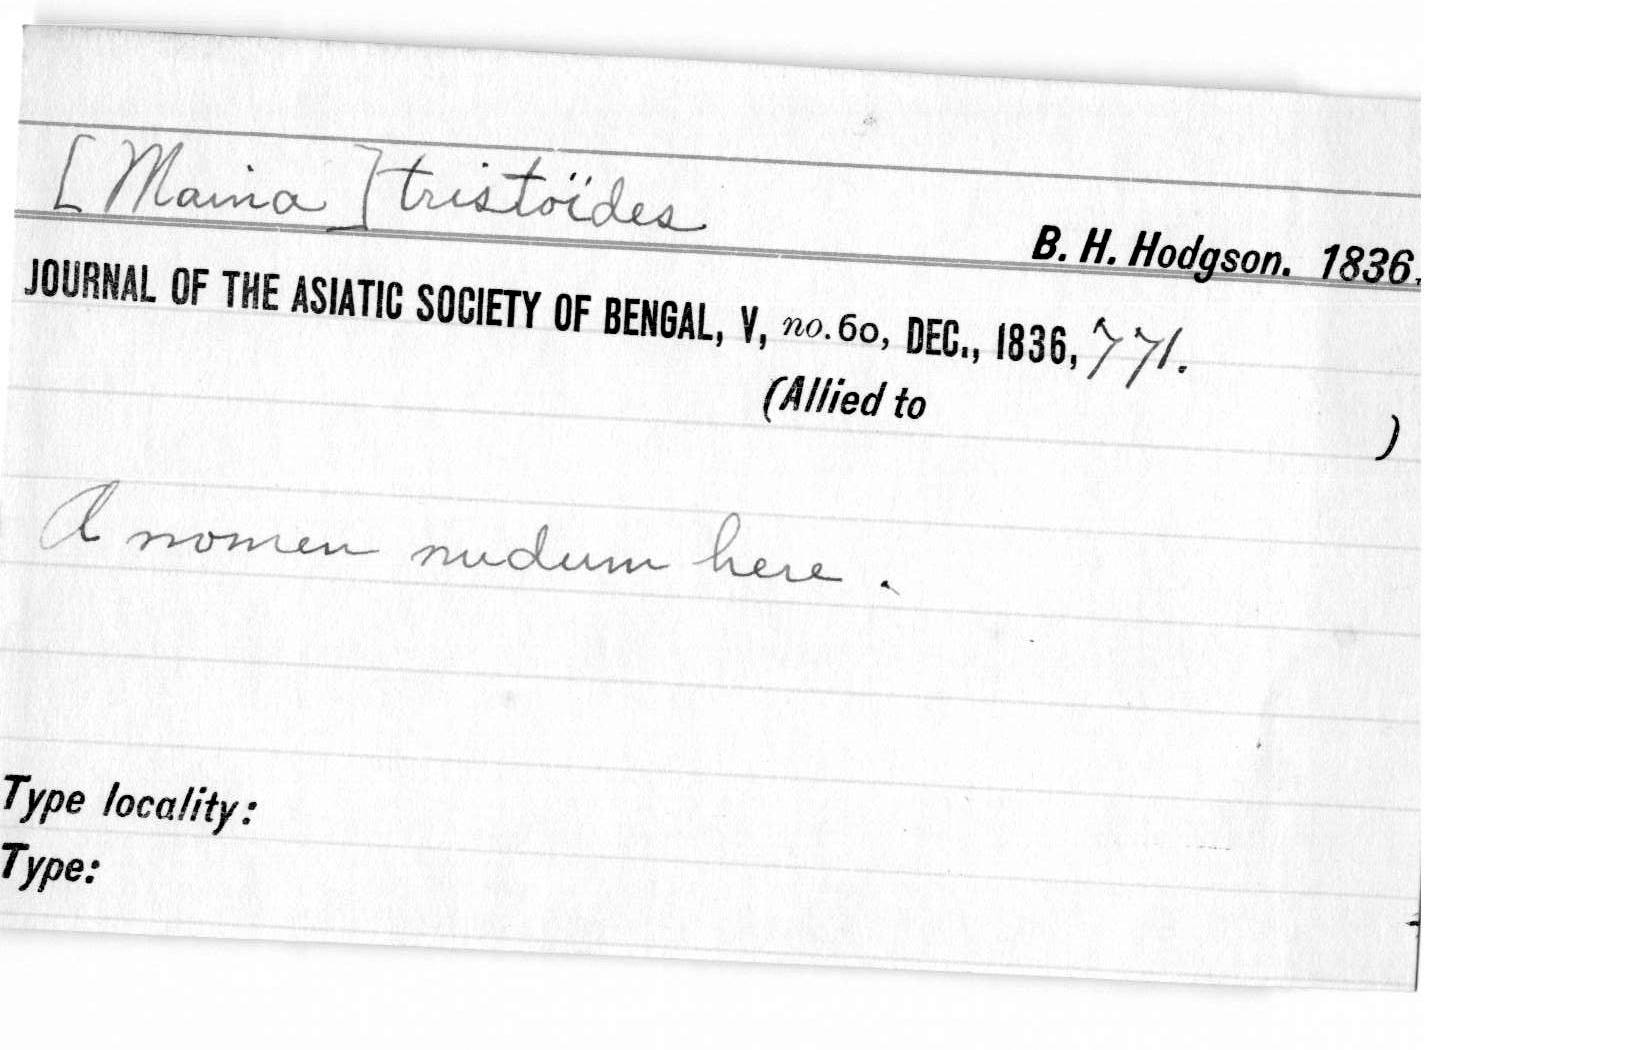 [Maina] tristoïdes
B. H. Hodgson. 1836.
JOURNAL OF THE ASIATIC SOCIETY OF BENGAL, V, no. 60, DEC., 1836, 771.
(Allied to )
A nomen nudum here.
Type locality:
Type: